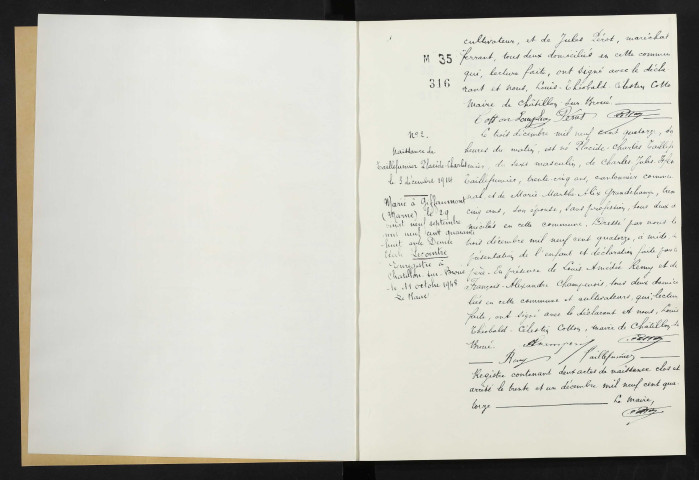 M 35
316
cultivateur, et de Jules Pérot, maréchal
ferrant, tous deux domiciliés en cette commune
qui, lecture faite, ont signé avec le décla-
rant et nous, Louis-Théobald-Célestin Cotte
maire de Châtillon sur Broué.
Pérot
N° 2.
Naissance de
Taillefumier Placide Charles
le 3 décembre 1914
Marié à Giffaumont
(Marne) le 29
septembre
mil neuf cent quarante
huit avec Denise
Lecointre
Enregistré à
Chatillon-sur-Broué
le 11 octobre 1948
Le Maire
Le trois décembre mil neuf cent quatorze,
heures du matin, est né Placide-Charles Taillefu-
mier, de sexe masculin, de Charles Jules
Taillefumier, trente-cinq ans, cantonnier
et de Marie Marthe Alix Grandchamp,
cinq ans, son épouse, sans profession, tous deux
en cette commune. Dressé par nous le
trois décembre mil neuf cent quatorze, à midi
présentation de l'enfant et déclaration faite par
père. En présence de Louis Amédée Remy et de
François-Alexandre Champenois, tous deux domici-
liés en cette commune et cultivateurs, qui, lecture
faite, ont signé avec le déclarant et nous, Louis
Théobald-Célestin Cotte, maire de Châtillon
Broué.
Remy Taillefumier
Registre contenant deux actes de naissance clos et
arrêté le trente et un décembre mil neuf cent qua-
torze Le Maire,